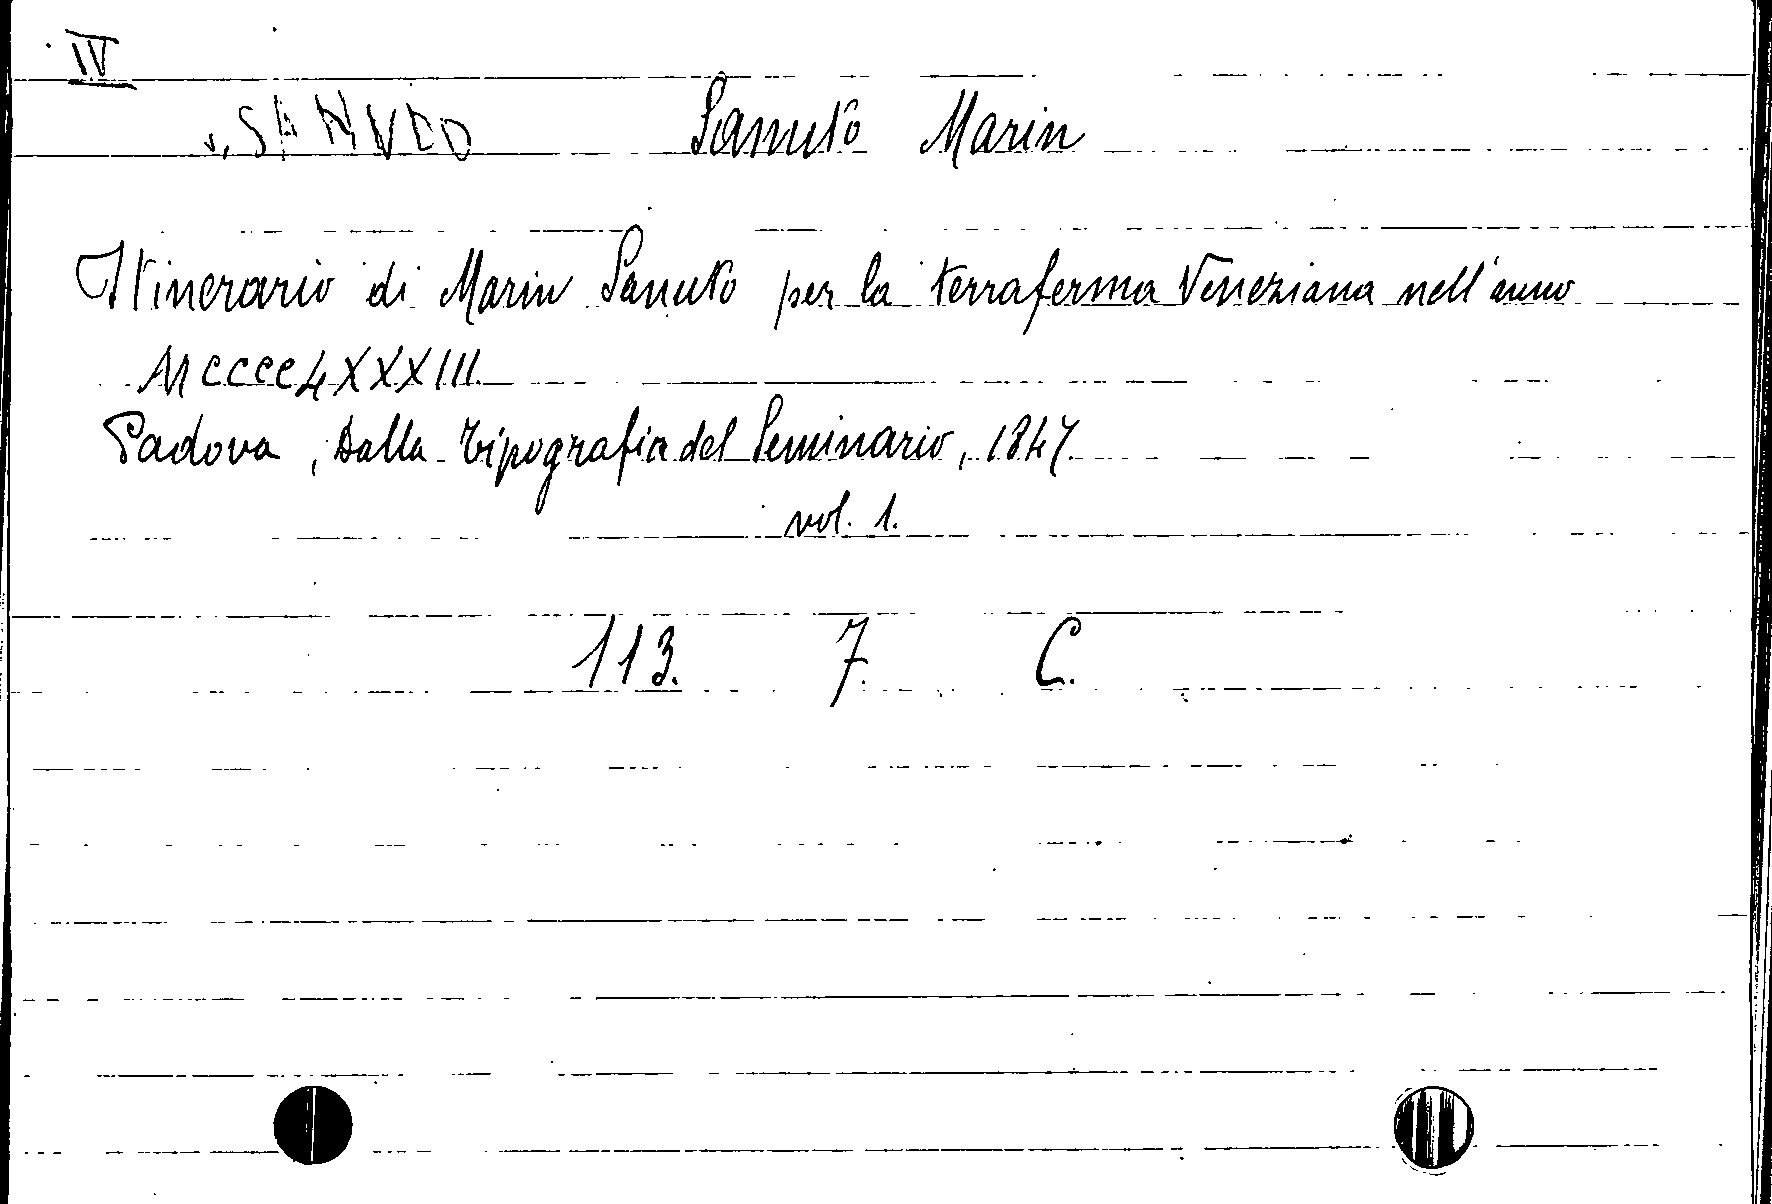 IV
v. SANUDO Sanuto Marin
Itinerario di Marin Sanuto per la terraferma Veneziana nell'anno
MCCCCLXXXIII.
Padova, Dalla tipografia del Seminario, 1847.
vol. 1.
113. 7. C.